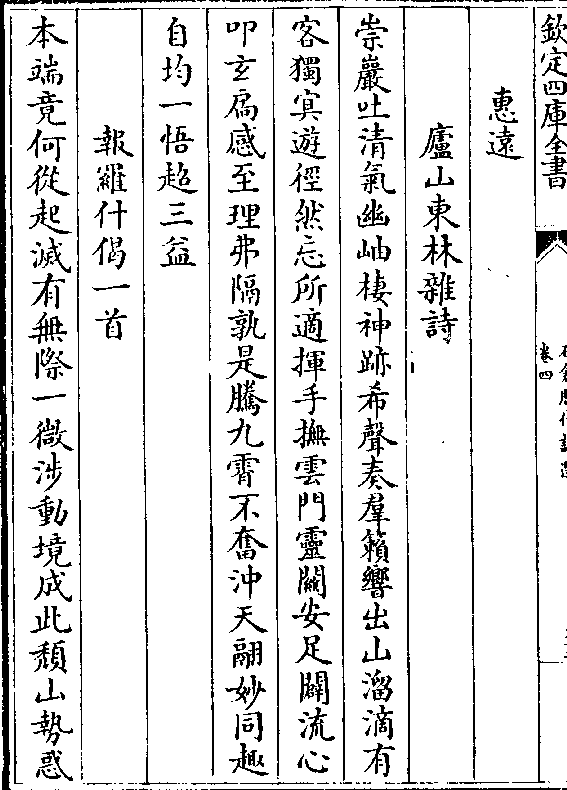 欽定四庫全書
卷四
惠遠
廬山東林雜詩
崇巖吐清氣幽岫棲神跡希聲奏羣籟響出山溜滴有
客獨冥遊徑然忘所適揮手撫雲門靈關安足闢流心
叩玄扄感至理弗隔孰是騰九霄不奮沖天翮妙同趣
自均一悟超三益
報羅什偈一首
本端竟何從起滅有無際一微涉動境成此頽山勢惑